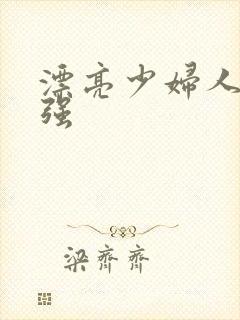 漂亮少婦人
强
梁齊齊